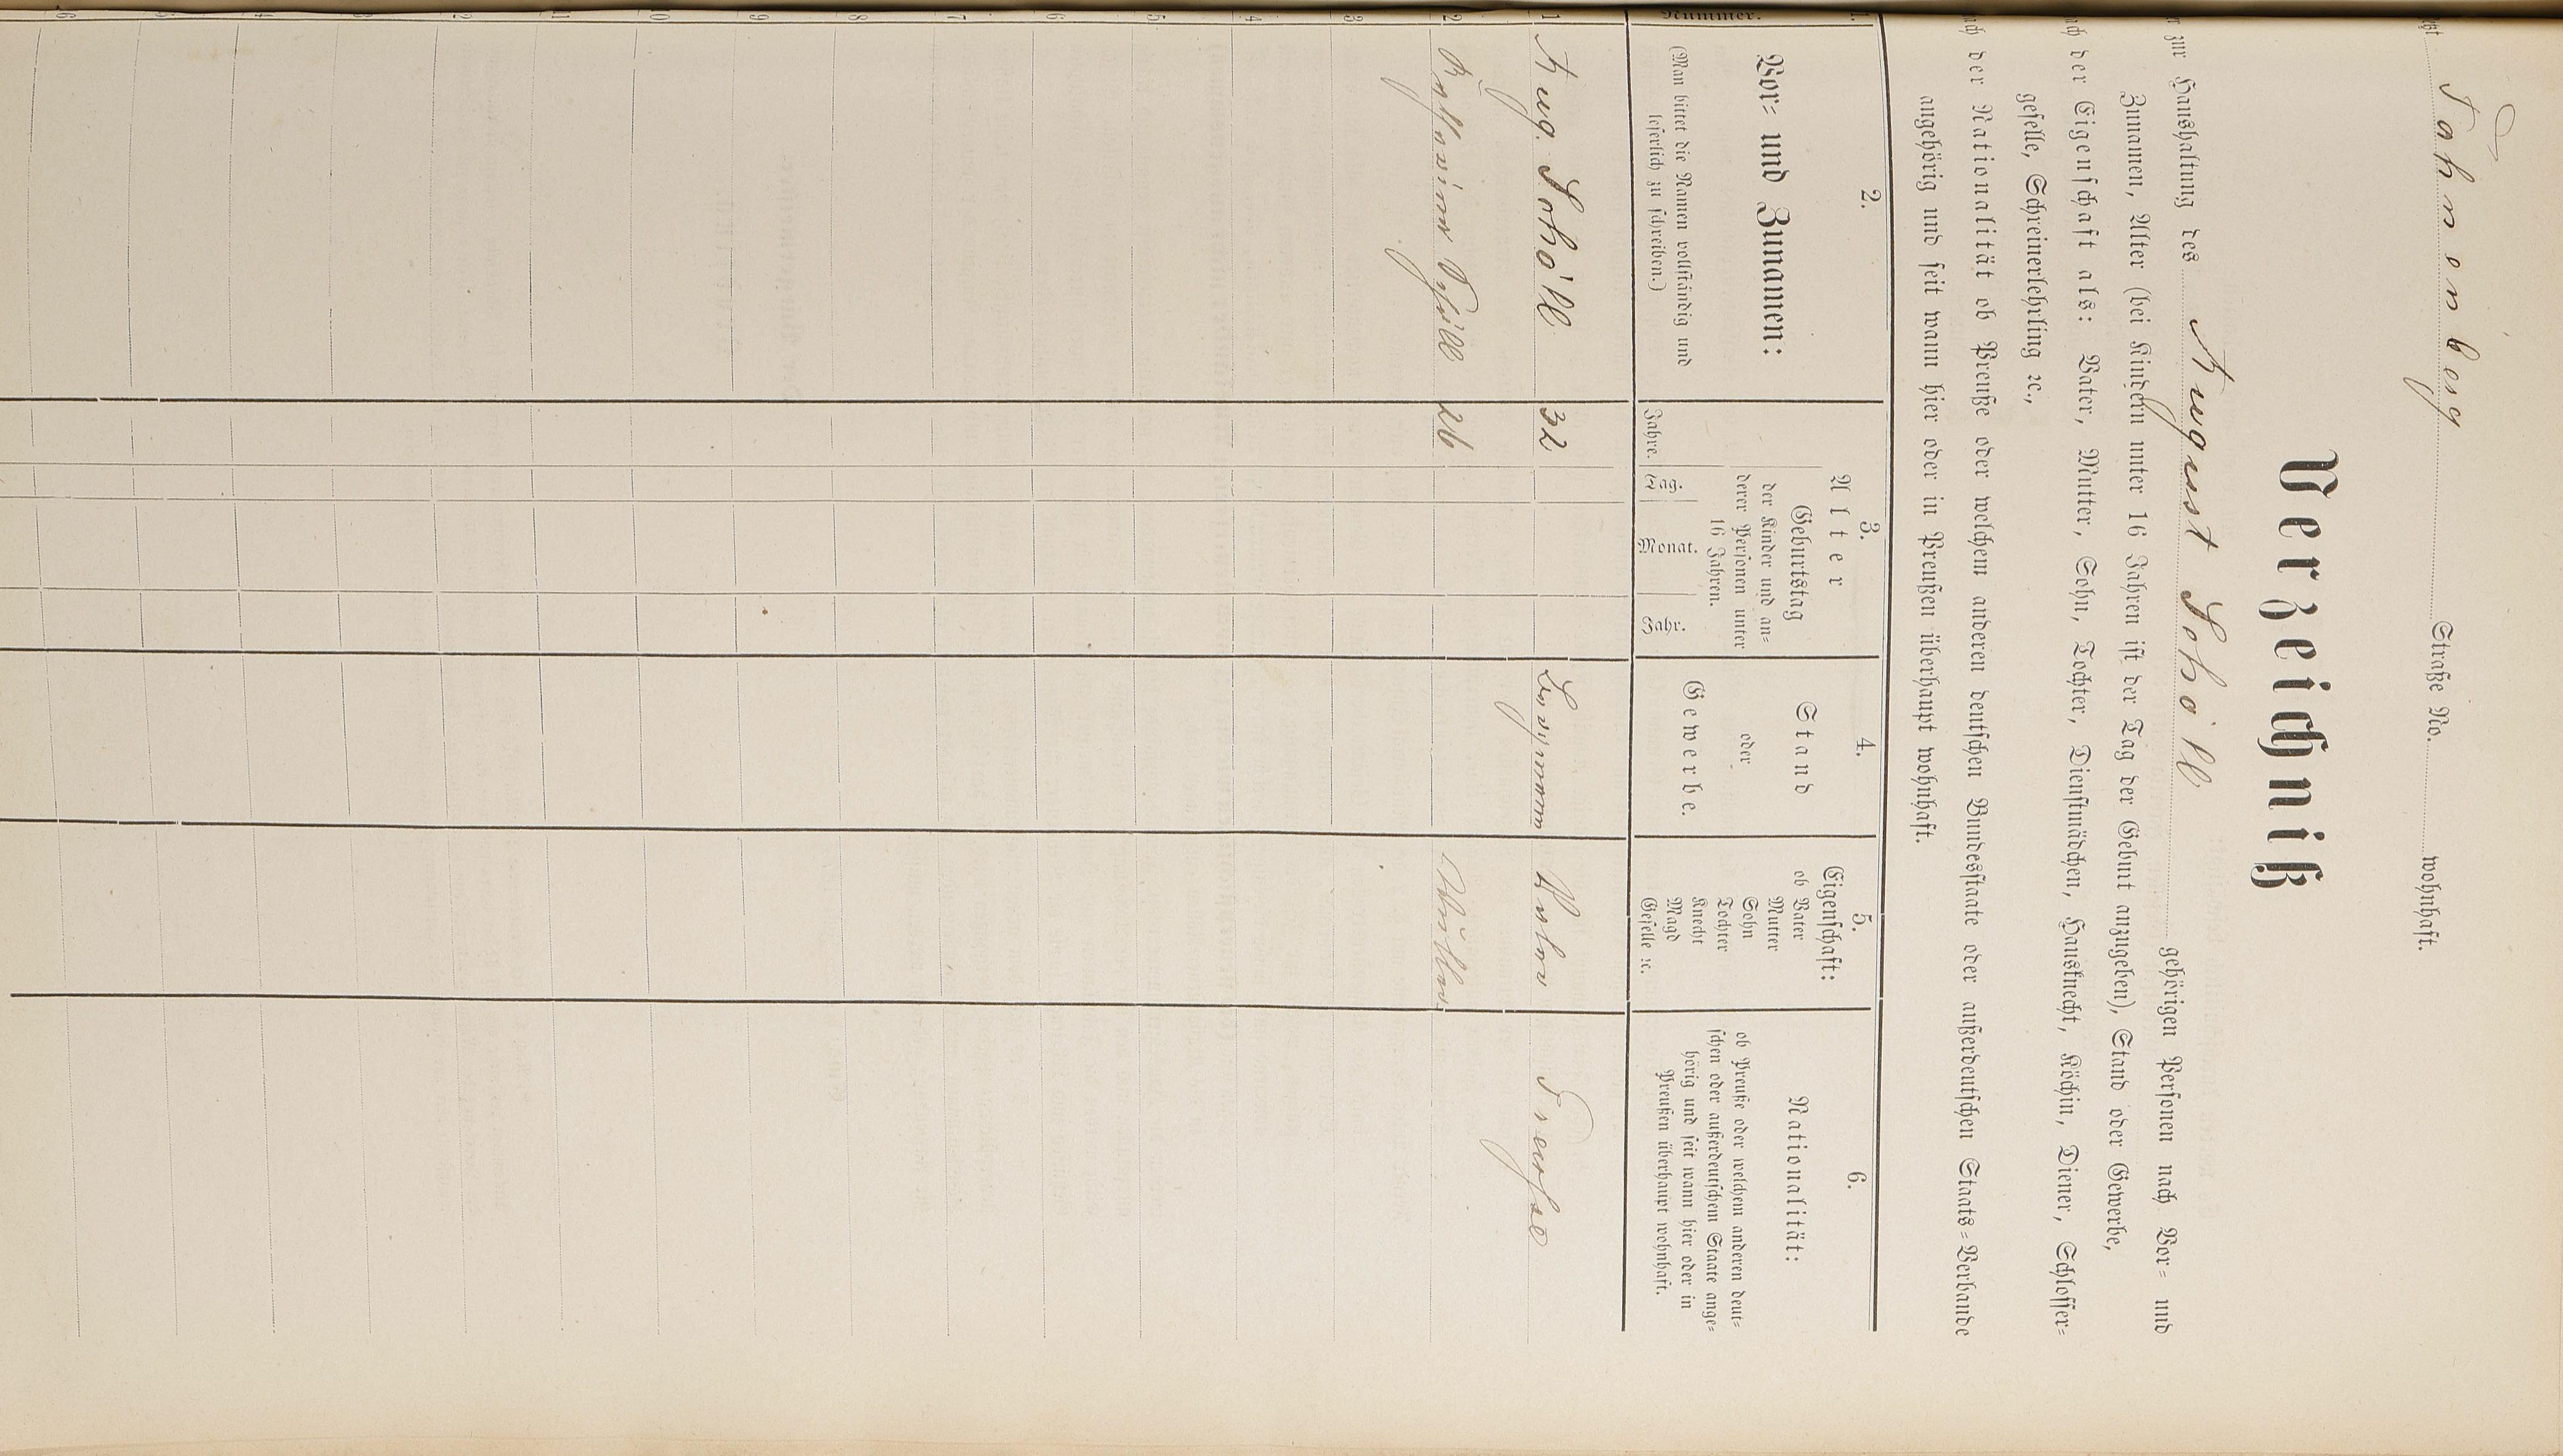 Straße No. wohnhaft.
Verzeichniß
zur Haushaltung des August Schöll gehörigen Personen nach Vor- und
Zunamen, Alter (bei Kindern unter 16 Jahren ist der Tag der Geburt anzugeben), Stand oder Gewerbe,
der Eigenschaft als: Vater, Mutter, Sohn, Tochter, Dienstmädchen, Hausknecht, Köchin, Diener, Schlosser-
geselle, Schreinerlehrling ꝛc.,
der Nationalität ob Preuße oder welchem anderen deutschen Bundesstaate oder außerdeutschen Staats-Verbande
angehörig und seit wann hier oder in Preußen überhaupt wohnhaft.
1. 2. 3. 4. 5. 6.
Nummer.
Vor- und Zunamen:
(Man bittet die Namen vollständig und
leserlich zu schreiben.)
Alter
Jahre.
Geburtstag
der Kinder und an-
derer Personen unter
16 Jahren.
Tag. Monat. Jahr.
Stand
oder
Gewerbe.
Eigenschaft:
ob Vater
Mutter
Sohn
Tochter
Knecht
Magd
Geselle ꝛc.
Nationalität:
ob Preuße oder welchem anderen deut-
schen oder außerdeutschem Staate ange-
hörig und seit wann hier oder in
Preußen überhaupt wohnhaft.
1 Aug. Schöll 32 Bergmann Vater Preusse
2 Schöll 26 Mutter
3
4
5
6
7
8
9
10
11
2
3
4
5
6